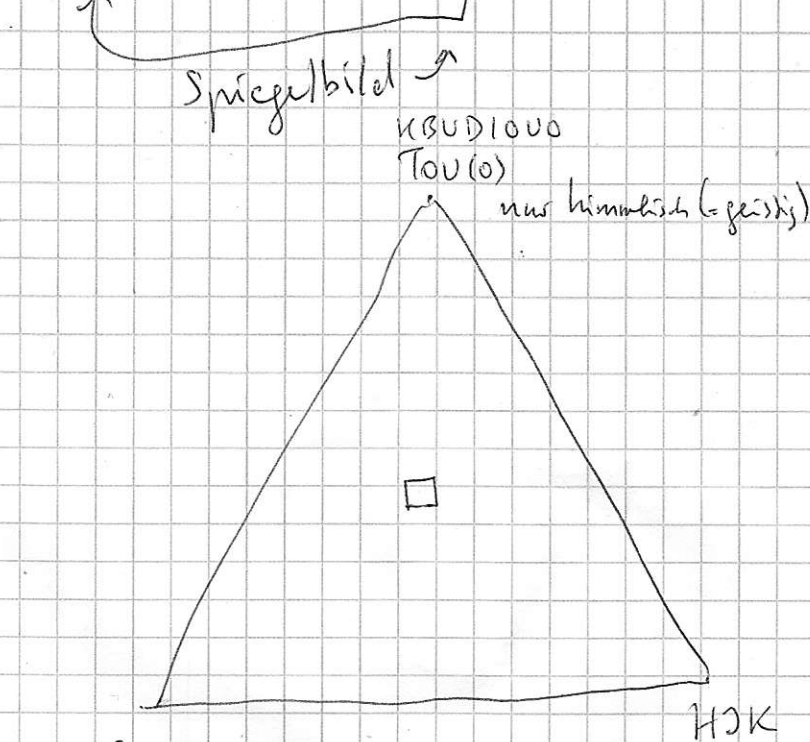 Spiegelbild
KBUDIOUO
TOU(O)
nur himmlisch (=geistig)
HJK